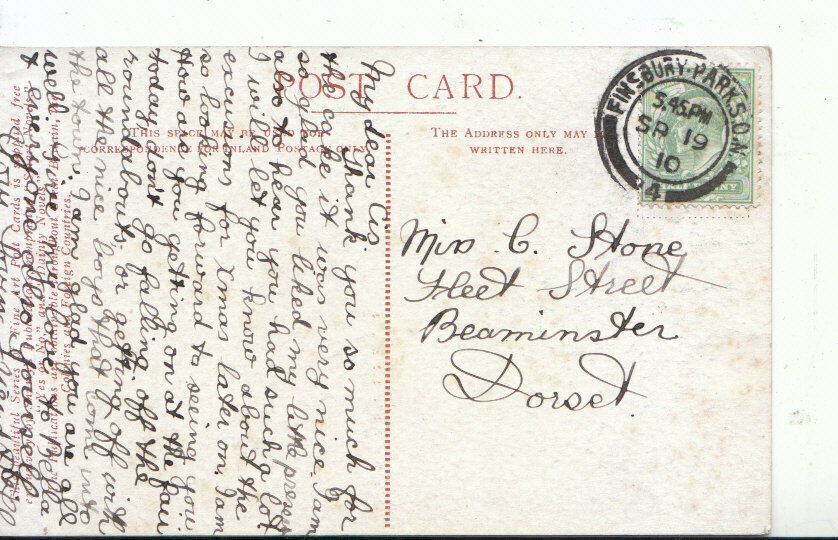 POST CARD.
THIS SPACE MAY BE USED FOR
CORRESPONDENCE FOR INLAND POSTAGE ONLY.
THE ADDRESS ONLY MAY BE
WRITTEN HERE.
FINSBURY PARK S.O. N.
3.45 PM
SP 19
10
24
Miss C. Stone
Fleet Street
Beaminster
Dorset.
My dear Cis
Thank you so much for
the cake it was very nice. I am
so glad you liked my little present
also to hear you had such a lot
I will let you know about the
excursions for Xmas later on, I am
so looking forward to seeing you
How are you getting on at the fair
today, don't go falling off the
roundabouts, or getting off with
all the nice boys that come into
the town. I am glad you are all
well
Beautiful Series of Fine Art Post Cards is supplied free
"Yes or No" and "Dainty Novels"
Colonies and Foreign Countries.